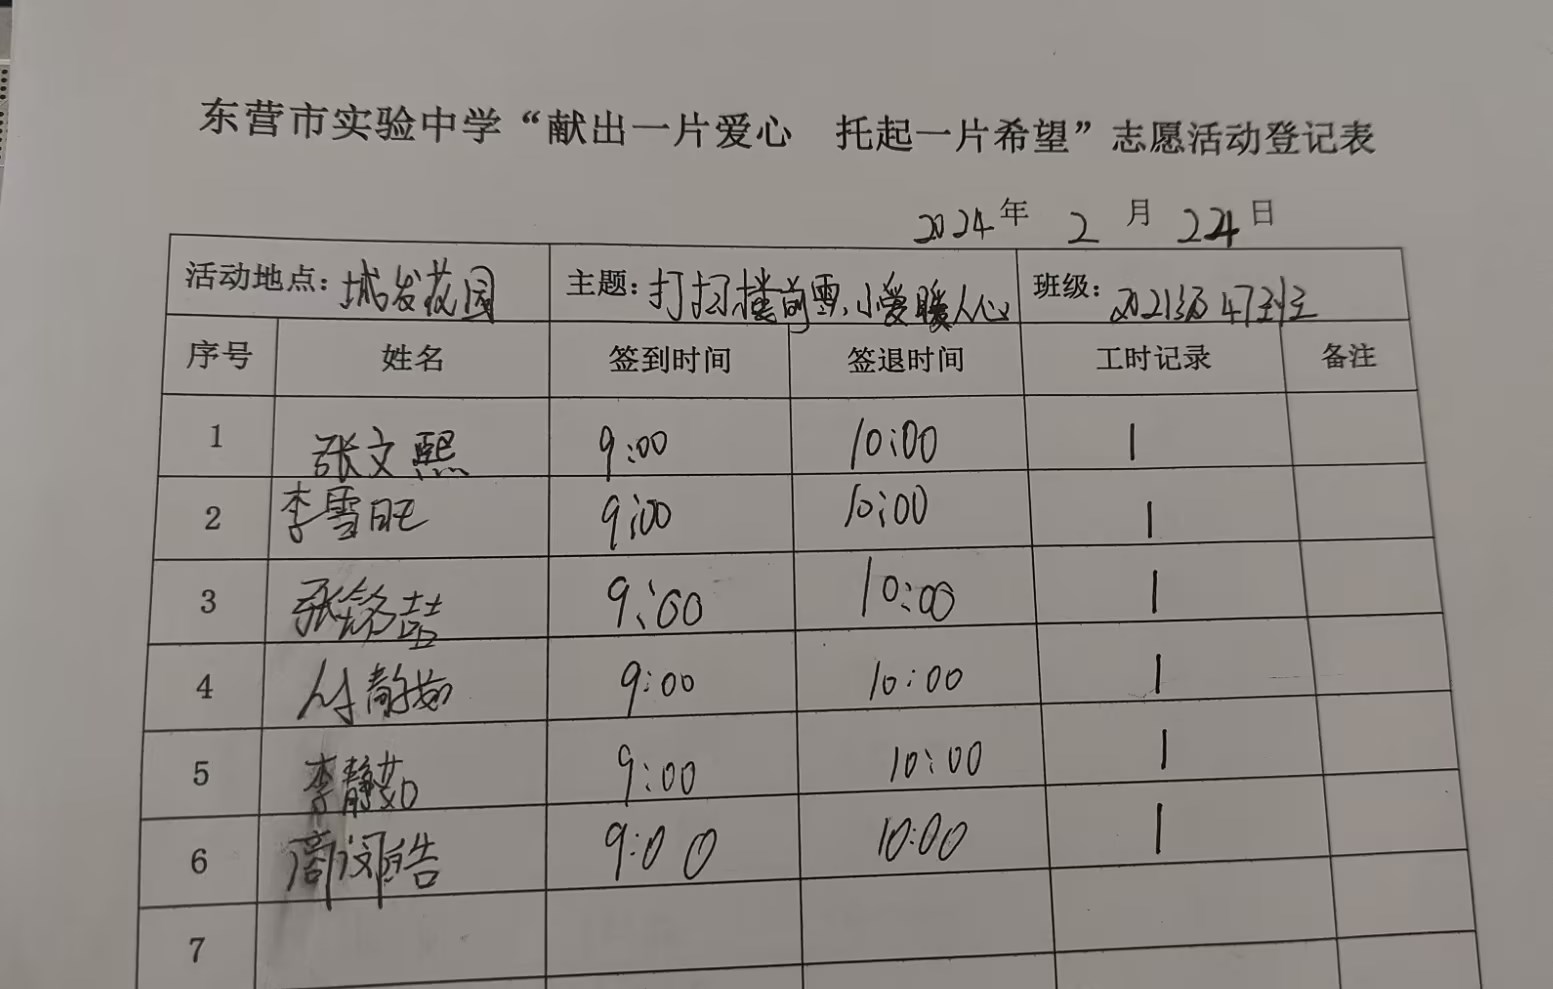 东营市实验中学“献出一片爱心 托起一片希望”志愿活动登记表
2024年 2 月 24日
活动地点：城发花园 主题：打扫楼前雪，小爱暖人心 班级：2021级47班
序号 姓名 签到时间 签退时间 工时记录 备注
1 张文熙 9:00 10:00 1
2 李雪旺 9:00 10:00 1
3 张铭喆 9:00 10:00 1
4 付静茹 9:00 10:00 1
5 李静茹 9:00 10:00 1
6 皓 9:00 10:00 1
7